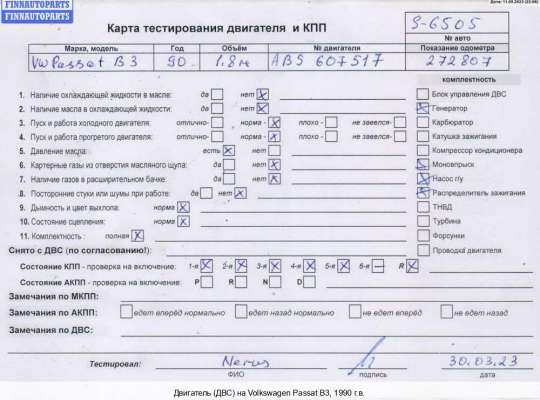 FINNAUTOPARTS
FINNAUTOPARTS
FINNAUTOPARTS
Дата: 11.09.2023
Карта тестирования двигателя и КПП
S-6505
№ авто
Марка, модель Год Объём № двигателя Показание одометра
VW Passat B3 90 1.8 м ABS 607517 272807
комплектность
1. Наличие охлаждающей жидкости в масле: да нет Блок управления ДВС
2. Наличие масла в охлаждающей жидкости: да нет Генератор
3. Пуск и работа холодного двигателя: отлично- норма - плохо - не завелся- Карбюратор
4. Пуск и работа прогретого двигателя: отлично - норма - плохо - не завелся - Катушка зажигания
5. Давление масла: есть нет Компрессор кондиционера
6. Картерные газы из отверстия масляного щупа: да нет Моновпрыск
7. Наличие газов в расширительном бачке: да нет Насос г/у
8. Посторонние стуки или шумы при работе: да нет Распределитель зажигания
9. Дымность и цвет выхлопа: норма ТНВД
10. Состояние сцепления: норма Турбина
11. Комплектность : полная Форсунки
Снято с ДВС (по согласованию!): Проводка двигателя
Состояние КПП - проверка на включение: 1-я 2-я 3-я 4-я 5-я 6-я R
Состояние АКПП - проверка на включение: P R N D
Замечания по МКПП:
Замечания по АКПП: едет вперёд нормально едет назад нормально не едет вперед не едет назад
Замечания по ДВС:
Тестировал: 30.03.23
ФИО подпись дата
Двигатель (ДВС) на Volkswagen Passat B3, 1990 г.в.